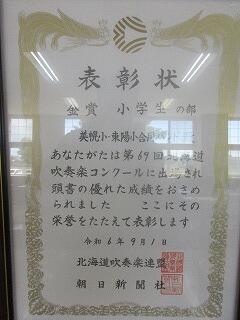 表彰状
金賞 小学生の部
美幌小・東陽小合同
あなたがたは第69回北海道
吹奏楽コンクールに出場され
頭書の優れた成績をおさめ
られました ここにその
栄誉をたたえて表彰します
令和6年9月1日
北海道吹奏楽連盟
朝日新聞社